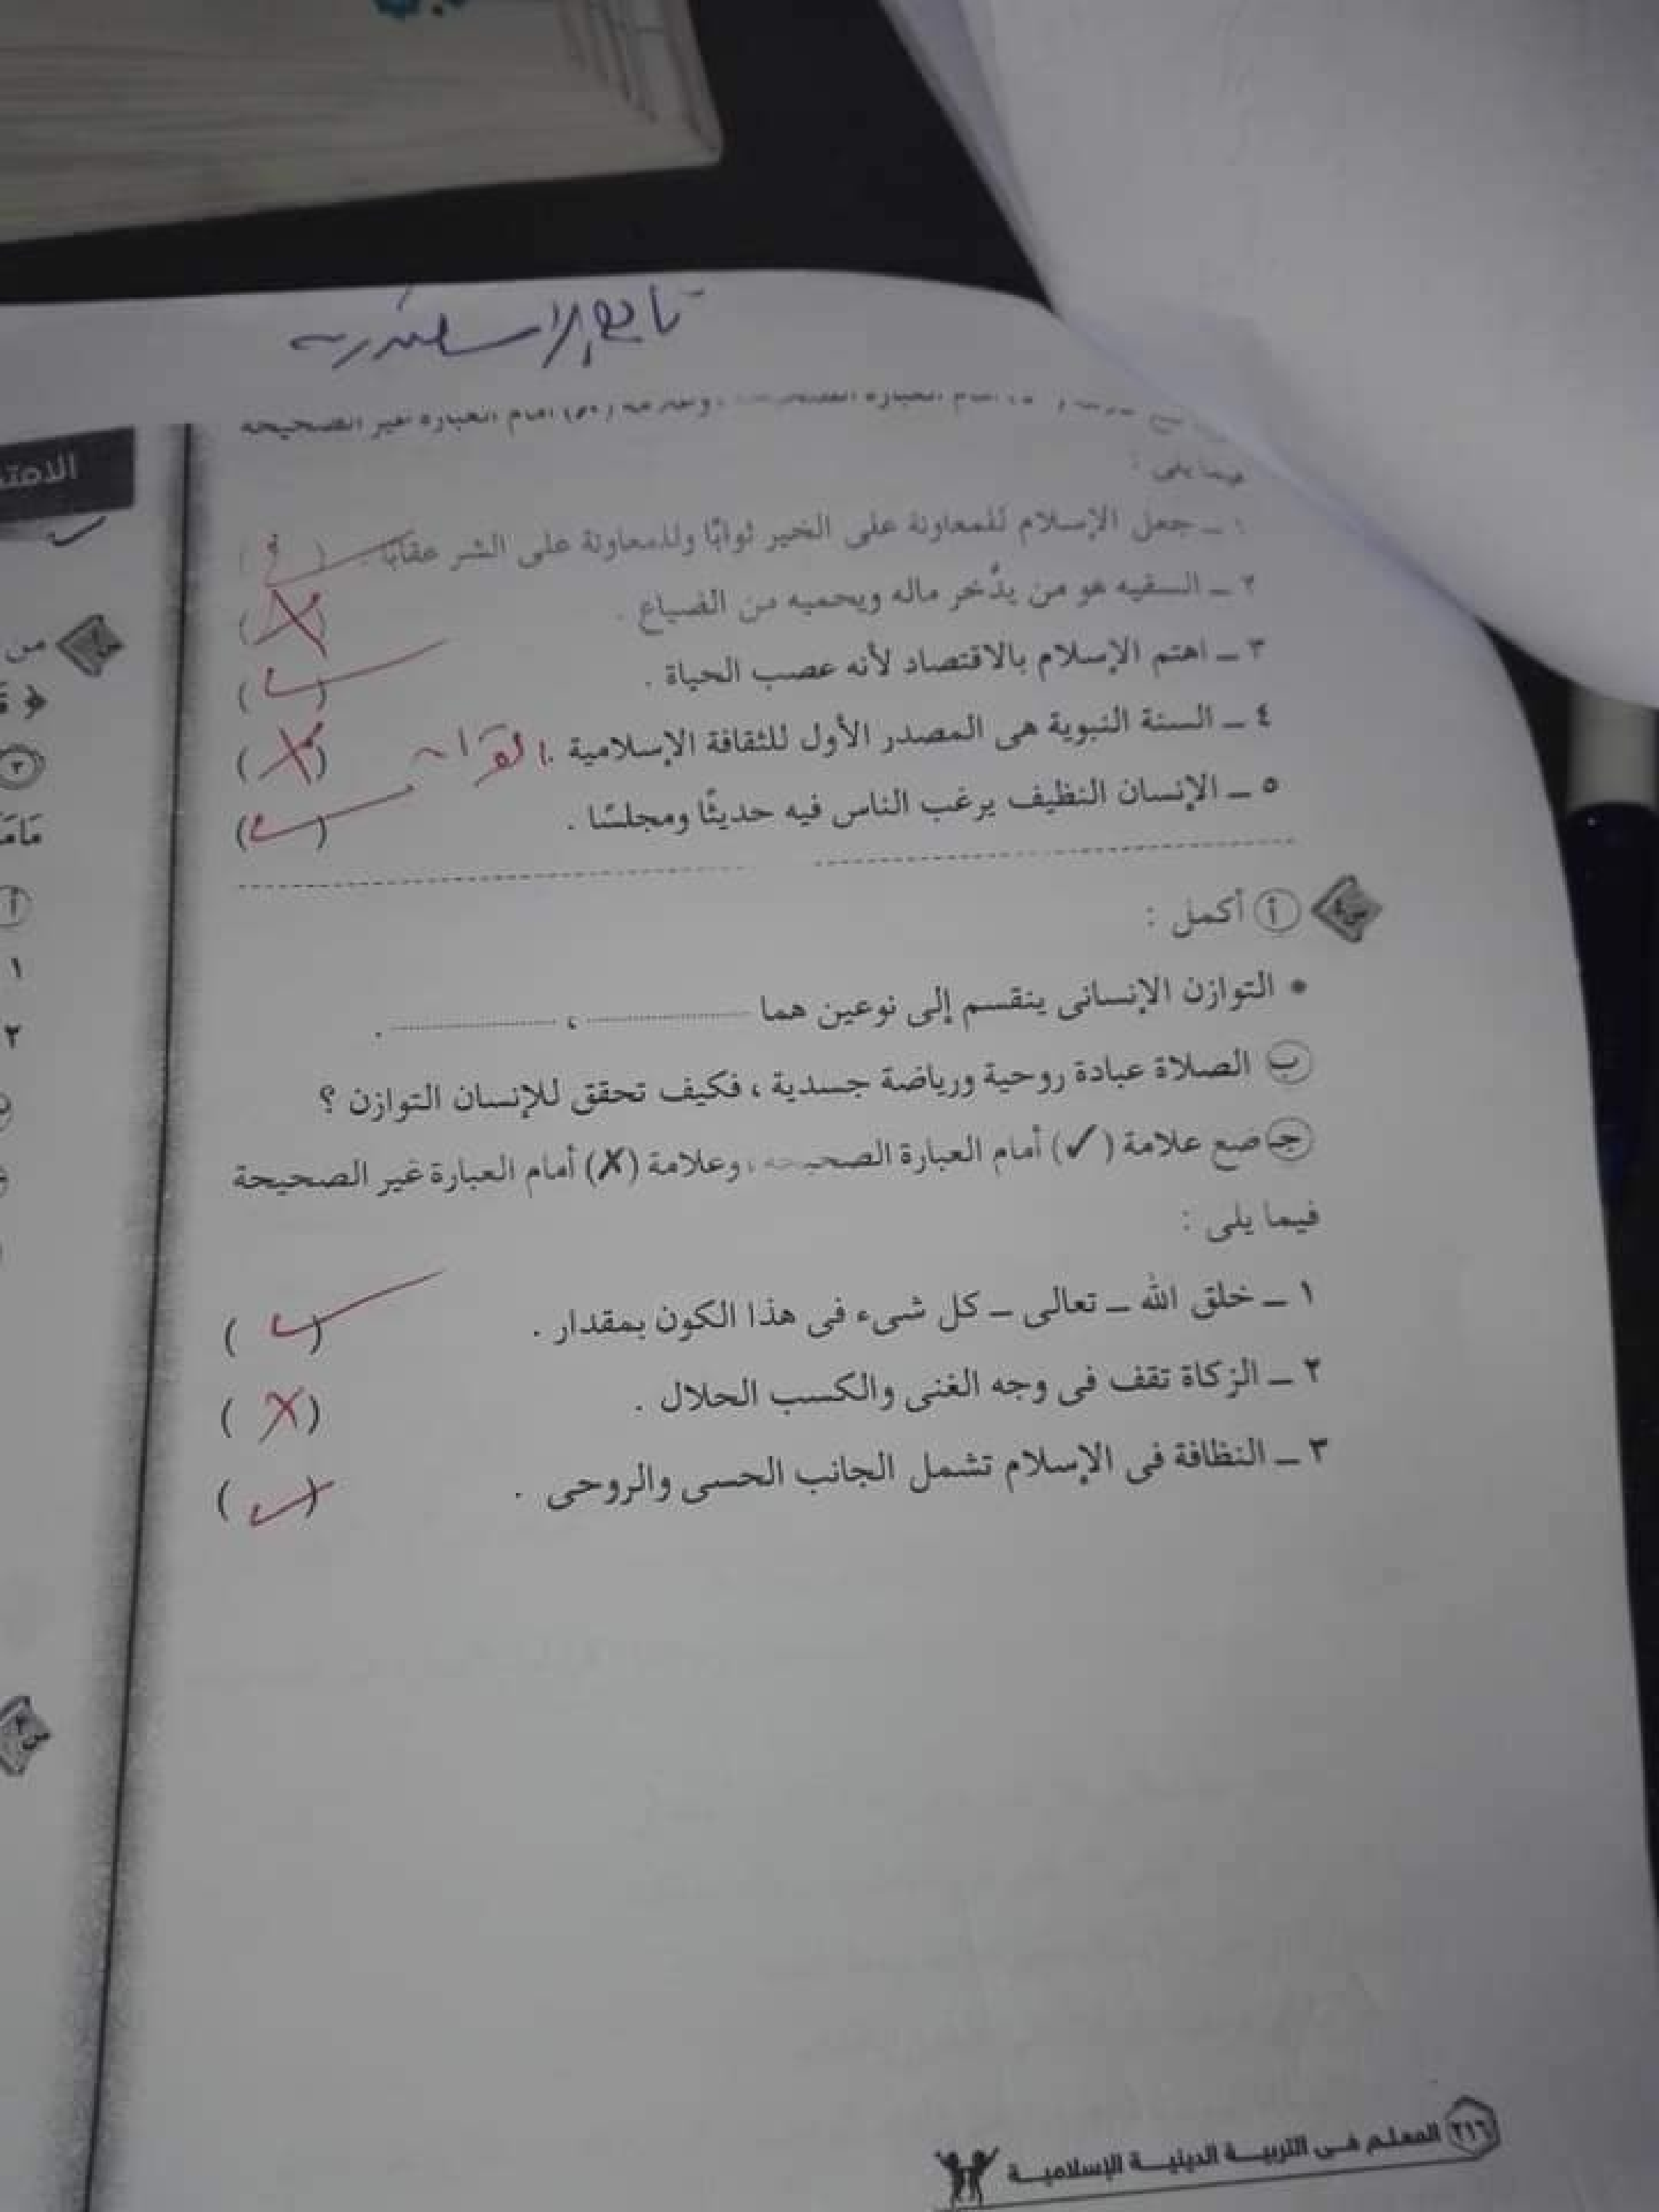 تابع الإسكندرية
أمام العبارة غير الصحيحة
فيما يلى :
١ ــ جعل الإسلام للمعاونة على الخير ثوابًا وللمعاونة على الشر عقابًا . ( )
٢ ــ السفيه هو من يدَّخر ماله ويحميه من الضياع . (X)
٣ ــ اهتم الإسلام بالاقتصاد لأنه عصب الحياة . (✓)
٤ ــ السنة النبوية هى المصدر الأول للثقافة الإسلامية . القرآن (X)
٥ ــ الإنسان النظيف يرغب الناس فيه حديثًا ومجلسًا . (✓)
س٤ أ أكمل :
• التوازن الإنسانى ينقسم إلى نوعين هما .............. ، .............. .
ب الصلاة عبادة روحية ورياضة جسدية ، فكيف تحقق للإنسان التوازن ؟
جـ ضع علامة (✓) أمام العبارة الصحيحة ، وعلامة (X) أمام العبارة غير الصحيحة
فيما يلى :
١ ــ خلق الله ــ تعالى ــ كل شىء فى هذا الكون بمقدار . (✓)
٢ ــ الزكاة تقف فى وجه الغنى والكسب الحلال . (X)
٣ ــ النظافة فى الإسلام تشمل الجانب الحسى والروحى . (✓)
٢١٦ المعلم فى التربية الدينية الإسلامية
من
٣
أ
١
٢
س٢